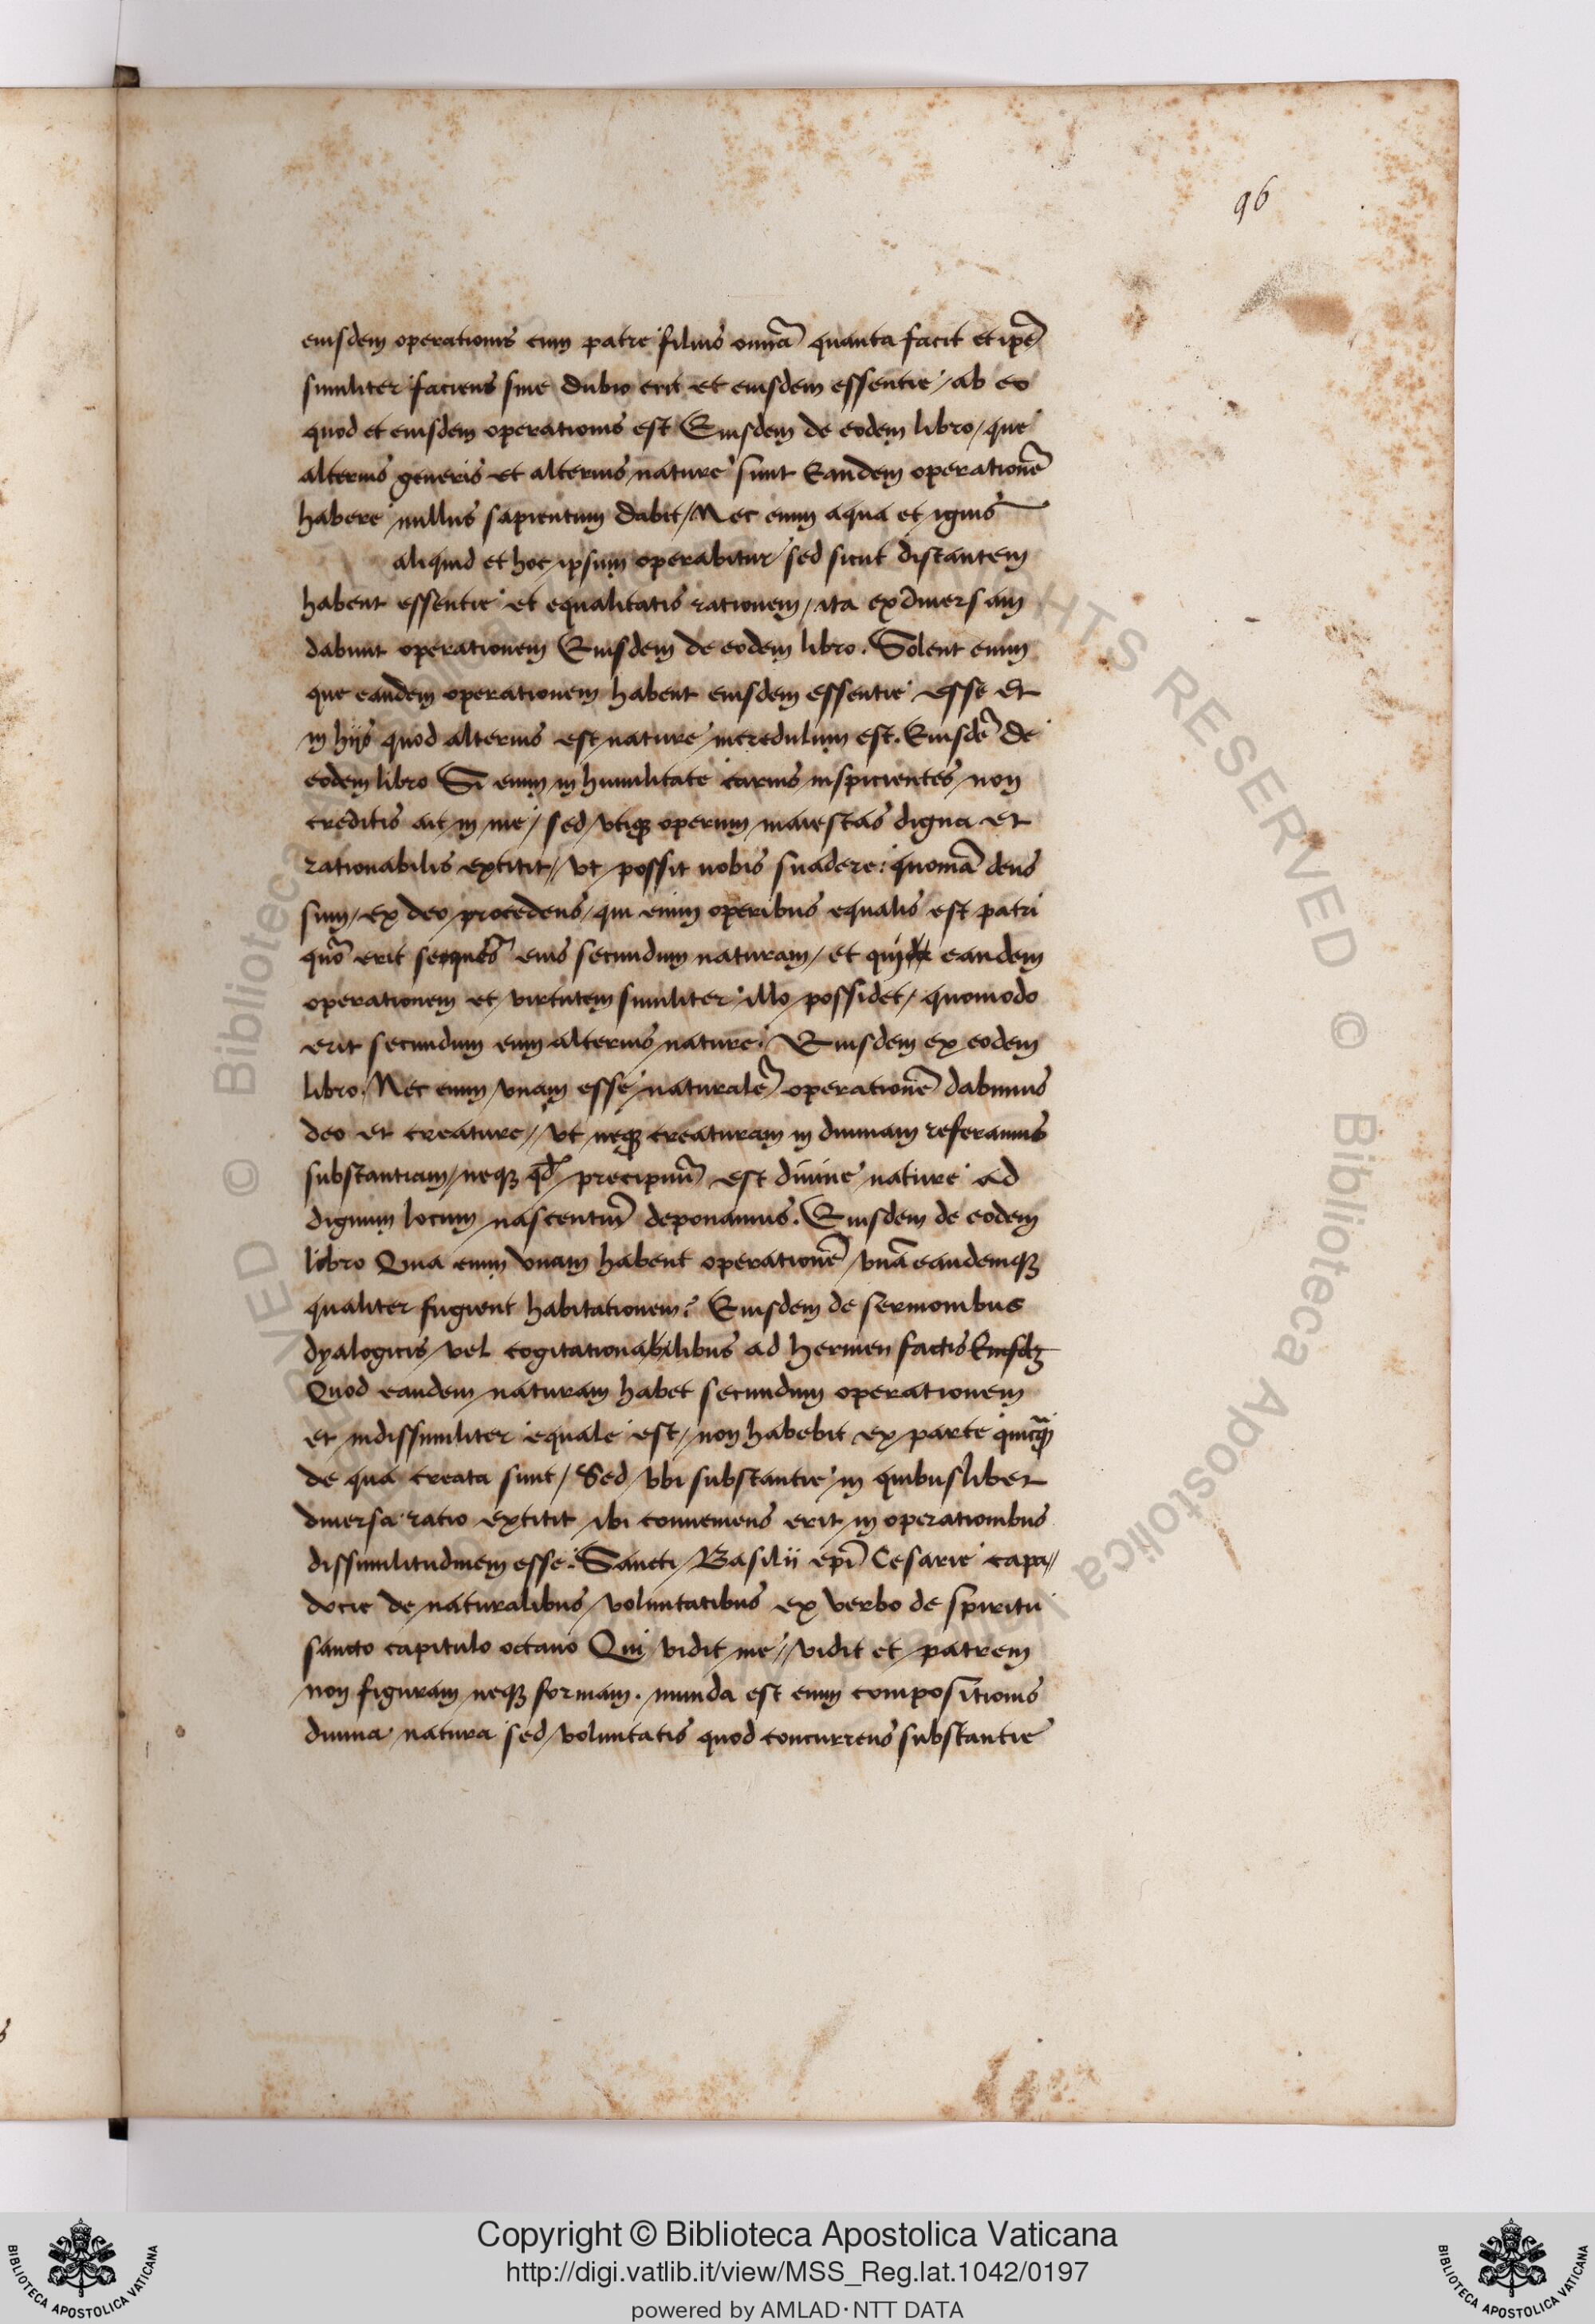 96
eiusdem operationis cum patre filius omīa quanta facit et ipē
similiter faciens sine dubio erit et eiusdem essentie / ab eo
quod et eiusdem operationis est Eiusdem de eodem libro / que
alterius generis et alterius nature sunt Eandem operationē
habere nullus sapientum dabit / Nec enim aqua et ignis
aliquid et hoc ipsum operabitur sed sicut distantem
habent essentie et equalitatis rationem / ita ex diuersam
dabunt operationem Eiusdem de eodem libro. Solent enim
que eandem operationem habent eiusdem essentie esse Et
in hijs quod alterius est nature incredulum est. Eiusdē de
eodem libro Si enim in humilitate carnis inspicientes non
creditis ait in me / sed vtiqꝫ operum maiestas digna et
rationabilis extitit // vt possit nobis suadere: quoniā deus
sum / ex deo procedens / qui enim operibus equalis est patri
quō erit eius secundum naturam / et qui eandem
operationem et virtutem similiter illo possidet / quomodo
erit secundum eum alterius nature. Eiusdem ex eodem
libro. Nec enim vnam esse naturalē operationē dabimus
deo et creature // vt neqꝫ creaturam in diuinam referamus
substantiam / neqꝫ qd̄ precipuū est diuine nature ad
dignum locum nascentiū deponamus. Eiusdem de eodem
libro Qua enim vnam habent operationē / vnā eandemqꝫ
qualiter fugient habitationem? Eiusdem de sermonibus
dyalogicis / vel cogitationabilibus ad hermen factis Eiusdꝫ
Quod eandem naturam habet secundum operationem
et indissimiliter equale est / non habebit ex parte quicq̄ꝫ
de qua creata sunt / Sed vbi substantie in quibuslibet
diuersa ratio extitit ibi conueniens erit in operationibus
dissimilitudinem esse. Sancti Basilij epī Cesarie capa//
docie de naturalibus voluntatibus ex verbo de spiritu
sancto capitulo octauo Qui vidit me // vidit et patrem
non figuram neqꝫ formam. munda est enim compositionis
diuina natura sed voluntatis quod concurrens substantie
Copyright © Biblioteca Apostolica Vaticana
http://digi.vatlib.it/view/MSS_Reg.lat.1042/0197
powered by AMLAD·NTT DATA